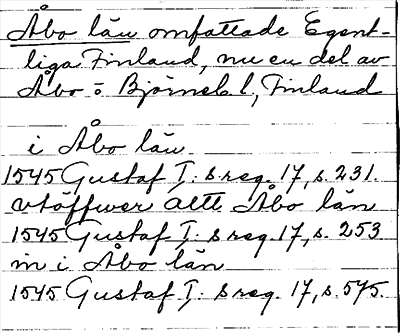 Åbo län omfattade Egent-
liga Finland, nu en del av
Åbo o Björneb. l, Finland
i Åbo län
1545 Gustaf I: s reg. 17, s. 231.
vtöffwer altt Åbo län
1545 Gustaf I: s reg. 17, s. 253
m i Åbo län
1545 Gustaf I: s reg. 17, s. 575.